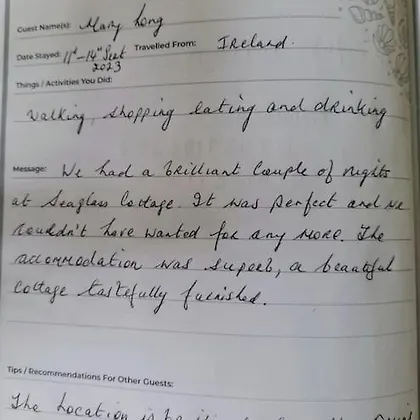 Guest Name(s): Mary Long
Date Stayed: 11th-14th Sept 2023 Travelled From: IReland.
Things / Activities You Did:
Walking, shopping eating and drinking
Message: We had a brilliant couple of nights
at Seaglass Cottage. It was perfect and we
couldn't have wanted for any more. The
accommodation was superb, a beautiful
cottage tastefully furnished.
Tips / Recommendations For Other Guests:
The location is